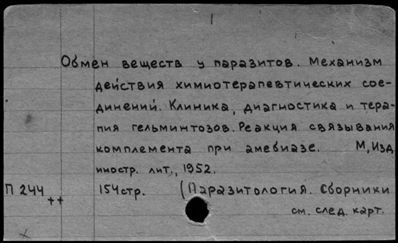 Обмен веществ у паразитов. Механизм
действия химиотерапевтических сое-
динений. Клиника, диагностика и тера-
пия гельминтозов. Реакция связывания
комплемента при амебиазе. М, Изд
иностр. лит., 1952.
П 244 ++ 154стр. (Паразитология. Сборники
см. след. карт.